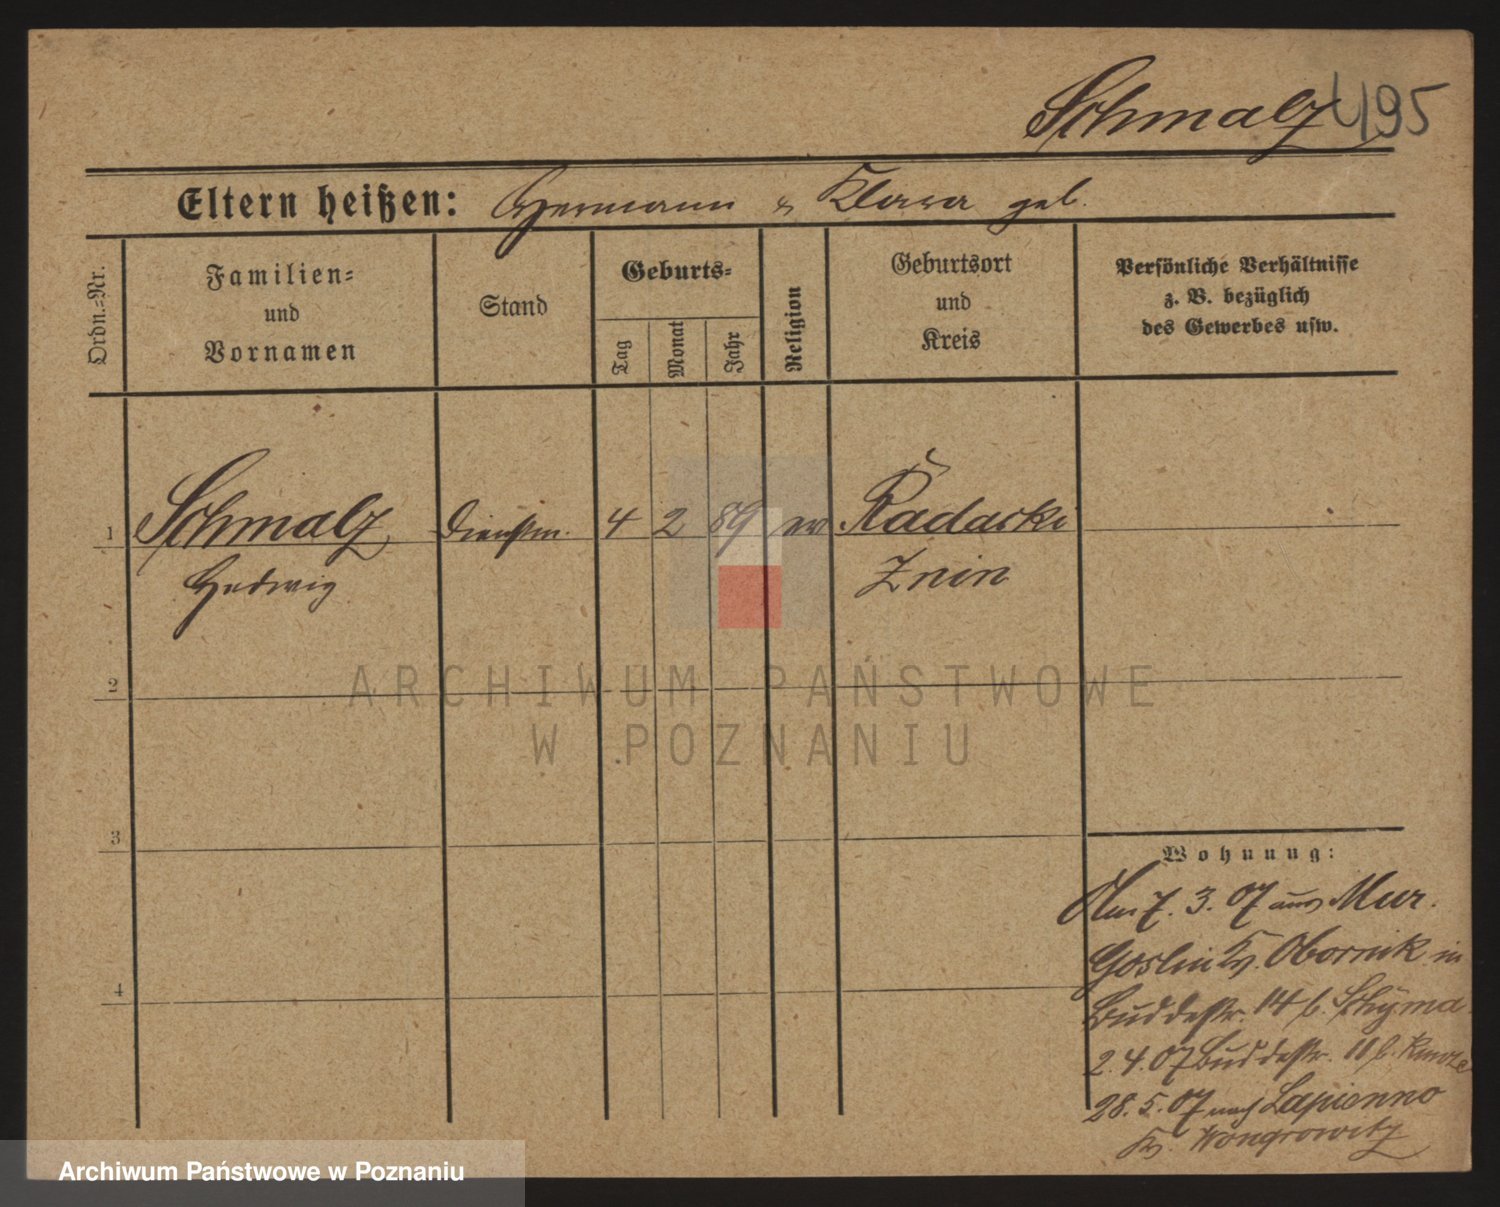 Schmalz 495
Eltern heißen: Hermann & Klara geb.
Ordn.-Nr.
Familien-
und
Vornamen
Stand
Geburts-
Tag
Monat
Jahr
Religion
Geburtsort
und
Kreis
Persönliche Verhältnisse
z. B. bezüglich
des Gewerbes usw.
1 Schmalz Dienstm. 4 2 89 ev Radacki
Hedwig Znin
2
3
4
Wohnung:
Am 7. 3. 07 aus Mur.
Goslin Kr. Obornik in
Buddestr. 14 b.
2. 4. 07 Buddestr. 11 b.
28. 5. 07 nach Lapienno
Kr. Wongrowitz
ARCHIWUM PAŃSTWOWE
W POZNANIU
Archiwum Państwowe w Poznaniu